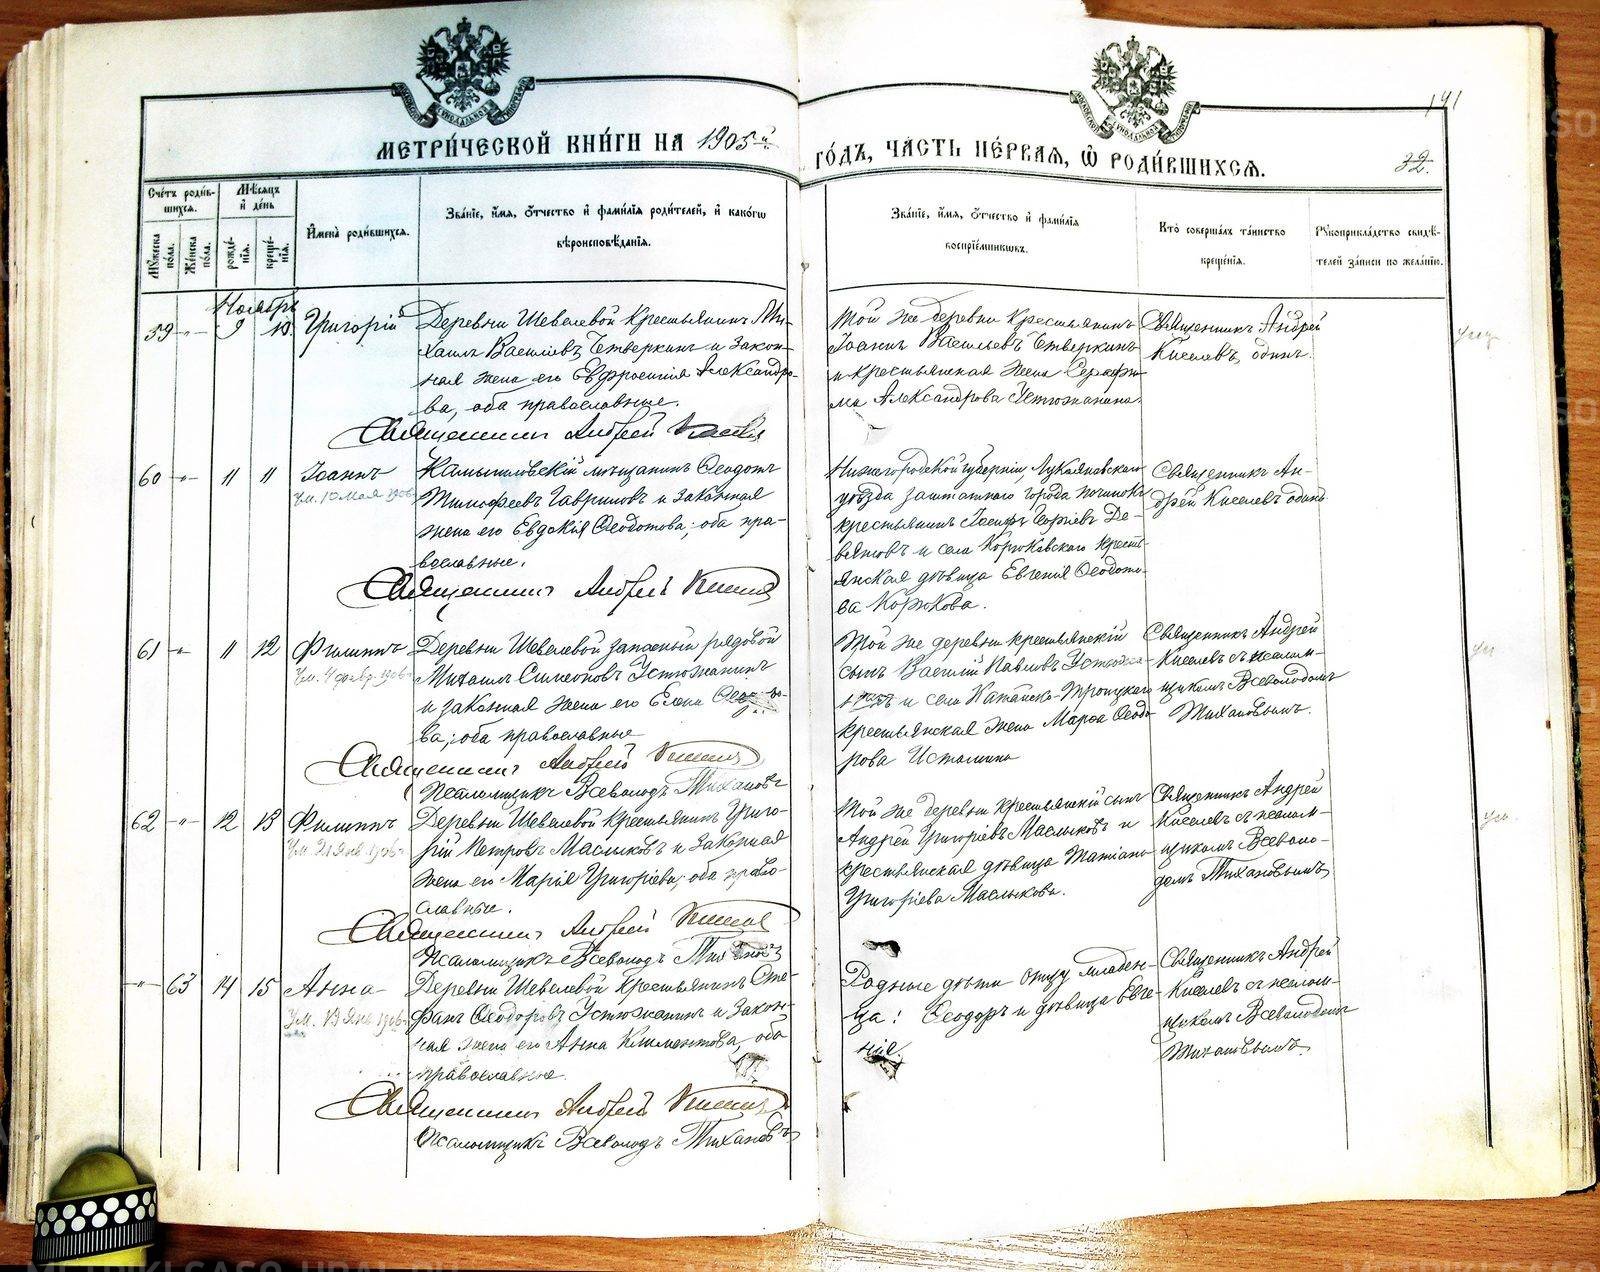 МЕТРИЧЕСКОЙ КНИГИ НА 1905й
ГОДЪ, ЧАСТЬ ПЕРВАЯ, Ѡ РОДИВШИХСЯ.
141
32.
Счетъ родив-
шихся.
Мѣсяцъ
и день
Имена родившихся.
Званіе, имя, отчество и фамилія родителей, и какого
вѣроисповѣданія.
Мужеска пола.
Женска пола.
рождё-
нія.
крещё-
нія.
Званіе, имя, отчество и фамилія
воспріемниковъ.
Кто совершалъ таинство
крещенія.
Рукоприкладство свидѣ-
телей записи по желанію.
Ноябрь
59 -"- 9 10 Григорій
Деревни Шевелевой крестьянинъ Ми-
хаилъ Васильевъ Четверкинъ и закон-
ная жена его Евфросинія Александро-
ва, оба православные.
Священникъ Андрей Киселевъ
Той же деревни крестьянинъ
Іоаннъ Васильевъ Четверкинъ
и крестьянская жена Серафи-
ма Александрова Устюжанина.
Священникъ Андрей
Киселевъ одинъ.
60 -"- 11 11 Іоаннъ
Ум. 10 мая 1906
Камышловскій мѣщанинъ Ѳеодотъ
Тимофеевъ Гавриловъ и законная
жена его Евдокія Ѳеодотова; оба пра-
вославные.
Священникъ Андрей Киселевъ
Нижегородской губерніи, Лукояновскаго
уѣзда заштатнаго города Починокъ
крестьянинъ Іосифъ Георгіевъ Де-
вятовъ и села Корюковскаго кресть-
янская дѣвица Евгенія Ѳеодото-
ва Корюкова.
Священникъ Ан-
дрей Киселевъ одинъ
61 -"- 11 12 Филиппъ
Ум. 4 февр. 1906
Деревни Шевелевой запасный рядовой
Михаилъ Симеоновъ Устюжанинъ
и законная жена его Елена
ва; оба православные
Священникъ Андрей Киселевъ
Псаломщикъ Всеволодъ Тихановъ
Той же деревни крестьянскій
сынъ Василій Павловъ
и села Катайско-Троицкаго
крестьянская жена Марѳа Ѳеодо-
рова Истомина
Священникъ Андрей
Киселевъ съ псалом-
щикомъ Всеволодомъ
Тихановымъ.
62 -"- 12 13 Филиппъ
Ум. 21 янв 1906
Деревни Шевелевой крестьянинъ Григо-
рій Петровъ Маслыковъ и законная
жена его Марія Григоріева; оба право-
славные.
Священникъ Андрей Киселевъ
Псаломщикъ Всеволодъ Тихановъ
Той же деревни крестьянскій сынъ
Андрей Григоріевъ Маслыковъ и
крестьянская дѣвица Татіана
Григоріева Маслыкова.
Священникъ Андрей
Киселевъ съ псалом-
щикомъ Всеволо-
домъ Тихановымъ
-"- 63 14 15 Анна
Ум. 13 янв 1906
Деревни Шевелевой крестьянинъ Сте-
фанъ Ѳеодоровъ Устюжанинъ и закон-
ная жена его Анна Климентова, оба
православные.
Священникъ Андрей Киселевъ
Псаломщикъ Всеволодъ Тихановъ
Родные дѣти отцу младен-
ца: Ѳеодоръ и дѣвица Евге-
нія.
Священникъ Андрей
Киселевъ съ псалом-
щикомъ Всеволодомъ
Тихановымъ.